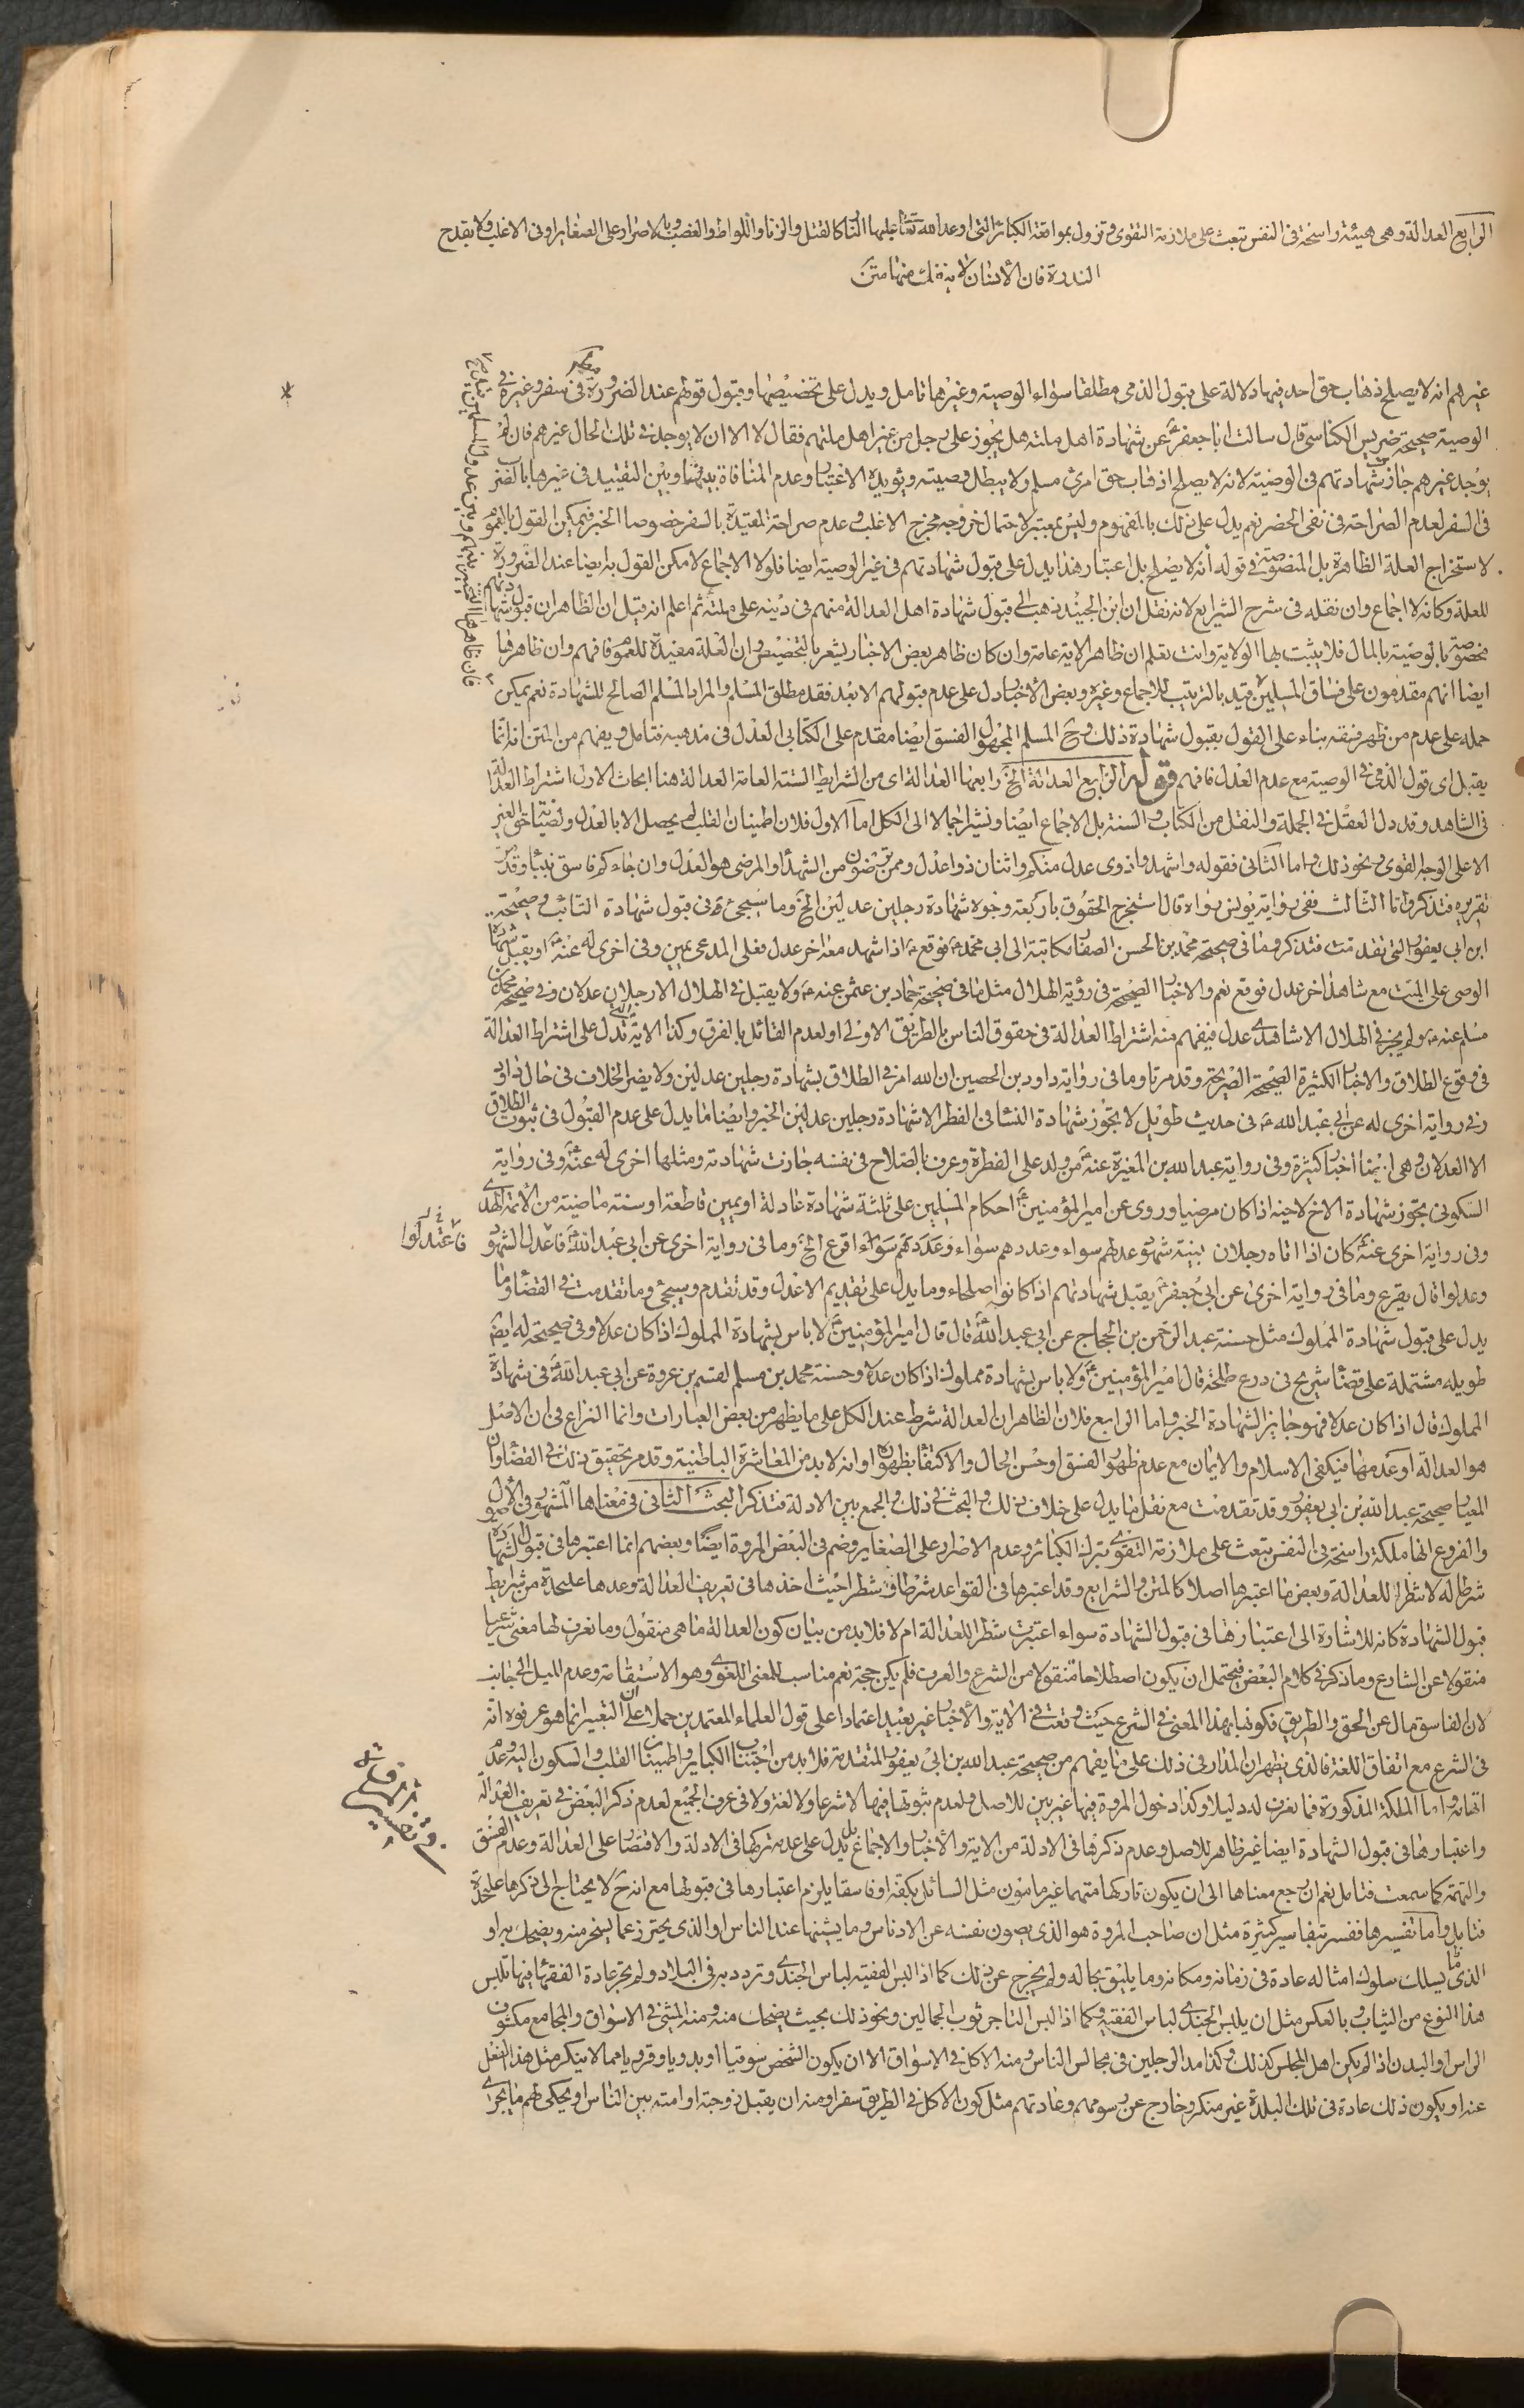 الرابع العدالة وهى هيئة راسخة فى النفس تبعث على ملازمة التقوى و تزول بمواقعة الكبائر التى اوعد الله تعا عليها النار كالقتل والزنا واللواط والغصب و بالاصرار على الصغاير او فى الاغلب ولا يقدح
الندرة فان الانسان لا ينفك منها متن
غيرهم انه لا يصلح ذهاب حق احد فيها دلالة على قبول الذمى مطلقا سواء الوصية وغيرها تامل ويدل على تخصيصها وقبول قولهم عند الضرورة فى سفر وغيره فى
الوصية صحيحة ضريس الكناسى قال سالت ابا جعفر ع عن شهادة اهل ملته هل يجوز على رجل من غير اهل ملتهم فقال لا الا ان لا يوجد فى تلك الحال غيرهم فان لم
يوجد غيرهم جازت شهادتهم فى الوصية لانه لا يصلح اذهاب حق امرئ مسلم ولا يبطل وصيته ويؤيده الاعتبار وعدم المنافاة بينها وبين التقييد فى غيرها بالضر
فى السفر لعدم الصراحة فى نفى الحضر نعم يدل على ذلك بالمفهوم وليس بمعتبر لاحتمال خروجه مخرج الاغلب و عدم صراحة المقيدة بالسفر خصوصا الخبر فيمكن القول بالعموم
لاستخراج العلة الظاهرة بل المنصوصة فى قوله أنه لا يصلح بل اعتبار هذا يدل على قبول شهادتهم فى غير الوصية ايضا فلولا الاجماع لامكن القول به ايضا عند الضرورة
للعلة وكانه لا اجماع وان نقله فى شرح الشرايع لانه نقل ان ابن الجنيد ذهب الى قبول شهادة اهل العدالة منهم فى دينه على ملته ثم اعلم انه قيل ان الظاهر ان قبول شهادتهم
مخصوصة بالوصية بالمال فلا يثبت بها الولاية وانت تعلم ان ظاهر الاية عامة وان كان ظاهر بعض الاخبار يشعر بالتخصيص وان العلة مفيدة للعموم فافهم وان ظاهرها
ايضا انهم مقدمون على فساق المسلمين قيد بالترتيب للاجماع وغيره وبعض الأخبار دل على عدم قبولهم الا بعد فقد مطلق المسلم والمراد المسلم الصالح للشهادة نعم يمكن
حمله على عدم من ظهر فسقه بناء على القول بقبول شهادة ذلك وح المسلم المجهول الفسق ايضا مقدم على الكتابى العدل فى مذهبه فتامل و يفهم من المتن انه انما
يقبل اى قول الذمى فى الوصية مع عدم العدل فافهم قوله الرابع العدالة الخ رابعها العدالة اى من الشرايط الستة العامة العدالة هنا ابحاث الاول اشتراط العدالة
فى الشاهد وقد دل العقل فى الجملة والنقل من الكتاب و السنة بل الاجماع ايضا ونشير اجمالا الى الكل اما الاول فلان اطمينان القلب لم يحصل الا بالعدل و تضييع حق الغير
الا على الوجه القوى و نحو ذلك و اما الثانى فقوله واشهدوا ذوى عدل منكم واثنان ذوا عدل وممن ترضون من الشهداء والمرضى هو العدل وان جاءكم فاسق بنبأ وقد مر
تقريره فتذكر واما الثالث ففى رواية يونس رواه قال استخرج الحقوق باربعة وجوه شهادة رجلين عدلين الخ وما سيجئ فى قبول شهادة التائب و صحيحة
ابن ابى يعفور التى تقدمت فتذكر وما فى صحيحة محمد بن الحسن الصفار مكاتبة الى ابى محمد ع فوقع ع اذا شهد معه اخر عدل فعلى المدعى يمين وفى اخرى له عنه ع او يقبل شهادة
الوصى على الميت مع شاهد اخر عدل فوقع نعم والاخبار الصحيحة فى رؤية الهلال مثل ما فى صحيحة حماد بن عثمن عنه ع ولا يقبل فى الهلال الا رجلان عدلان وفى صحيحة محمد بن
مسلم عنه ع ولم يجز فى الهلال الا شاهدى عدل فيفهم منه اشتراط العدالة فى حقوق الناس بالطريق الاولى او لعدم القائل بالفرق وكذا الاية التى تدل على اشتراط العدالة
فى وقوع الطلاق والاخبار الكثيرة الصحيحة الصريحة وقد مر تا وما فى رواية داود بن الحصين ان الله امر فى الطلاق بشهادة رجلين عدلين ولا يضر الخلاف فى حال داود
وفى رواية اخرى له عن ابى عبد الله ع فى حديث طويل لا يجوز شهادة النساء فى الفطر الا شهادة رجلين عدلين الخبر وايضا ما يدل على عدم القبول فى ثبوت الطلاق
الا العدلان وهى ايضا اخبار كثيرة وفى رواية عبد الله بن المغيرة عنه ع من ولد على الفطرة وعرف بالصلاح فى نفسه جازت شهادته ومثلها اخرى له عنه ع وفى رواية
السكونى تجوز شهادة الاخ لاخيه اذا كان مرضيا وروى عن امير المؤمنين ع احكام المسلمين على ثلثة شهادة عادلة او يمين قاطعة او سنة ماضية من الائمة الهدى
وفى رواية اخرى عنه ع كان اذا اتاه رجلان ببينة شهود عدلهم سواء وعددهم سواء وعددهم سواء اقرع الخ وما فى رواية اخرى عن ابى عبد الله ع فاعدل الشهود
فاعتدلوا
وعدلوا قال يقرع وما فى رواية اخرى عن ابى جعفر ع يقبل شهادتهم اذا كانوا صلحاء وما يدل على تقديم الاعدل وقد تقدم وسيجئ وما تقدمت فى القضاء وما
يدل على قبول شهادة المملوك مثل حسنة عبد الرحمن بن الحجاج عن ابى عبد الله ع قال قال امير المؤمنين ع لا باس بشهادة المملوك اذا كان عدلا وفى صحيحته له ايضا
طويله مشتملة على قضاء شريح فى درع طلحة قال امير المؤمنين ع ولا باس بشهادة مملوك اذا كان عدلا وحسنة محمد بن مسلم لقسم بن عروة عن ابى عبد الله ع فى شهادة
المملوك قال اذا كان عدلا فهو جايز الشهادة الخبر و اما الرابع فلان الظاهر ان العدالة شرط عند الكل على ما يظهر من بعض العبارات وانما النزاع فى ان الاصل
هو العدالة او عدمها فيكفى الاسلام والايمان مع عدم ظهور الفسق او حسن الحال والاكتفاء بظهوره او انه لا بد من المعاشرة الباطنية وقد مر تحقيق ذلك فى القضاء وان
المعيار صحيحة عبد الله بن ابى يعفور وقد تقدمت مع نقل ما يدل على خلاف ذلك و البحث فى ذلك و الجمع بين الادلة فتذكر البحث الثانى فى معناها المشهور فى الأصول
والفروع انها ملكة راسخة فى النفس تبعث على ملازمة التقوى بترك الكبائر وعدم الاصرار على الصغاير وضم فى البعض المروة ايضا وبعضهم انما اعتبرها فى قبول الشهادة
شرطا له لا شطرا للعدالة وبعض ما اعتبرها اصلا كالمتن و الشرايع وقد اعتبرها فى القواعد شرطا و شطرا حيث اخذها فى تعريف العدالة وعدها عليحدة من شرايط
قبول الشهادة كانه للاشارة الى اعتبارها فى قبول الشهادة سواء اعتبرت شطرا للعدالة ام لا فلا بد من بيان كون العدالة ما هى منقول وما نعرف لها معنى شرعيا
منقولا عن الشارع وما ذكر فى كلام البعض فيحتمل ان يكون اصطلاحا منقولا من الشرع والعرف فلم يكن حجة نعم مناسب للمعنى اللغوى وهو الاستقامة وعدم الميل الى جانب
لان الفاسق مال عن الحق والطريق فكونها بهذا المعنى فى الشرع حيث وقعت فى الاية والأخبار غير بعيد اعتمادا على قول العلماء المعتمدين حملا على ان التغيير انما هو عرفوه انه
فى الشرع مع اتفاق اللغة فالذى يظهر ان المدار فى ذلك على ما يفهم من صحيحة عبد الله بن ابى يعفور المتقدمة فلا بد من اجتناب الكباير واطمينان القلب و السكون اليه وعدم
اتهامه واما الملكة المذكورة فما نعرف له دليلا وكذا دخول المروة فيها غير بين للاصل ولعدم ثبوتها فيها لا شرعا ولا لغة ولا فى عرف الجميع لعدم ذكر البعض فى تعريف العدالة
واعتبارها فى قبول الشهادة ايضا غير ظاهر للاصل وعدم ذكرها فى الادلة من الاية والأخبار والاجماع بل يدل على عدمه تركها فى الادلة والاقتصار على العدالة وعدم الفسق
والتهمة كما سمعت فتامل نعم ان رجع معناها الى ان يكون تاركها متهما غير مامون مثل السائل بكفه او فاسقا يلزم اعتبارها فى قبولها مع انه ح لا يحتاج الى ذكرها عليحدة
فتامل واما تفسيرها ففسر بتفاسير كثيرة مثل ان صاحب المروة هو الذى يصون نفسه عن الادناس وما يشينها عند الناس او الذى يحترز عما يسخر منه ويضحك به او
الذى يسلك سلوك امثاله عادة فى زمانه ومكانه وما يليق بحاله ولم يخرج عن ذلك كما اذا لبس الفقيه لباس الجندى وتردد به فى البلاد ولم يجر عادة الفقهاء فيها تلبس
هذا النوع من الثياب و بالعكس مثل ان يلبس الجندى لباس الفقيه وكما اذا لبس التاجر ثوب الجمالين ونحو ذلك بحيث يضحك منه ومنه المشى فى الاسواق والمجامع مكشوف
الراس او البدن اذا لم يكن اهل المجلس كذلك و كذا مد الرجلين فى مجالس الناس ومنه الاكل فى الاسواق الا ان يكون الشخص سوقيا او بدويا وقرويا مما لا ينكر مثل هذا الفعل
عنه او يكون ذلك عادة فى تلك البلدة غير منكر وخارج عن رسومهم وعادتهم مثل كون الاكل فى الطريق سفرا ومنه ان يقبل زوجته او امته بين الناس او يحكى لهم ما يجرى